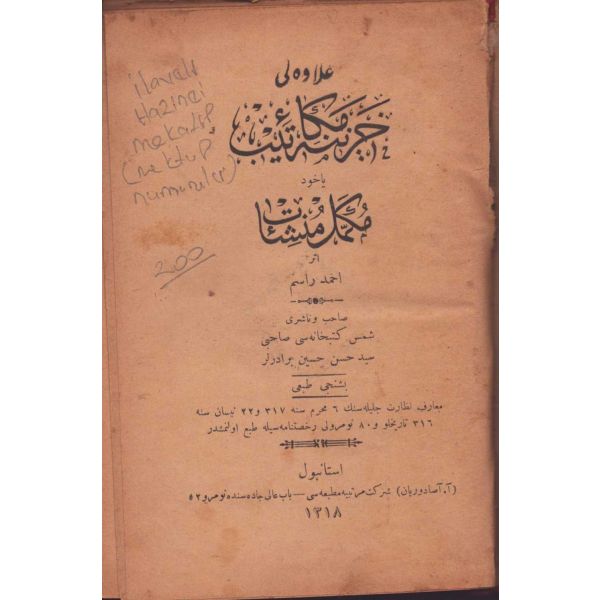 علاوه لی
خزینۀ مكاتیب
یاخود
مكمّل مُنشئات
اثر
احمد راسم
صاحب و ناشری
شمس كتبخانه‌سی صاحبی
سید حسن حسین برادرلر
بشنجی طبعی
معارف نظارت جلیله‌سنك ٦ محرم سنه ٣١٧ و ٢٢ نیسان سنه
٣١٦ تاریخلو و ٨٠ نومرولی رخصتنامه سیله طبع اولنمشدر
استانبول
(آ. آصادوریان) شركت مرتبیه مطبعه‌سی — باب عالی جاده سنده نومرو ٥٢
١٣١٨
ilaveli
Hazinei
mekatip
(mektup
numuneler)
200